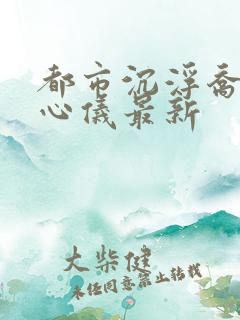 都市沉浮乔
心仪最新
大柴健
未经同意禁止转载